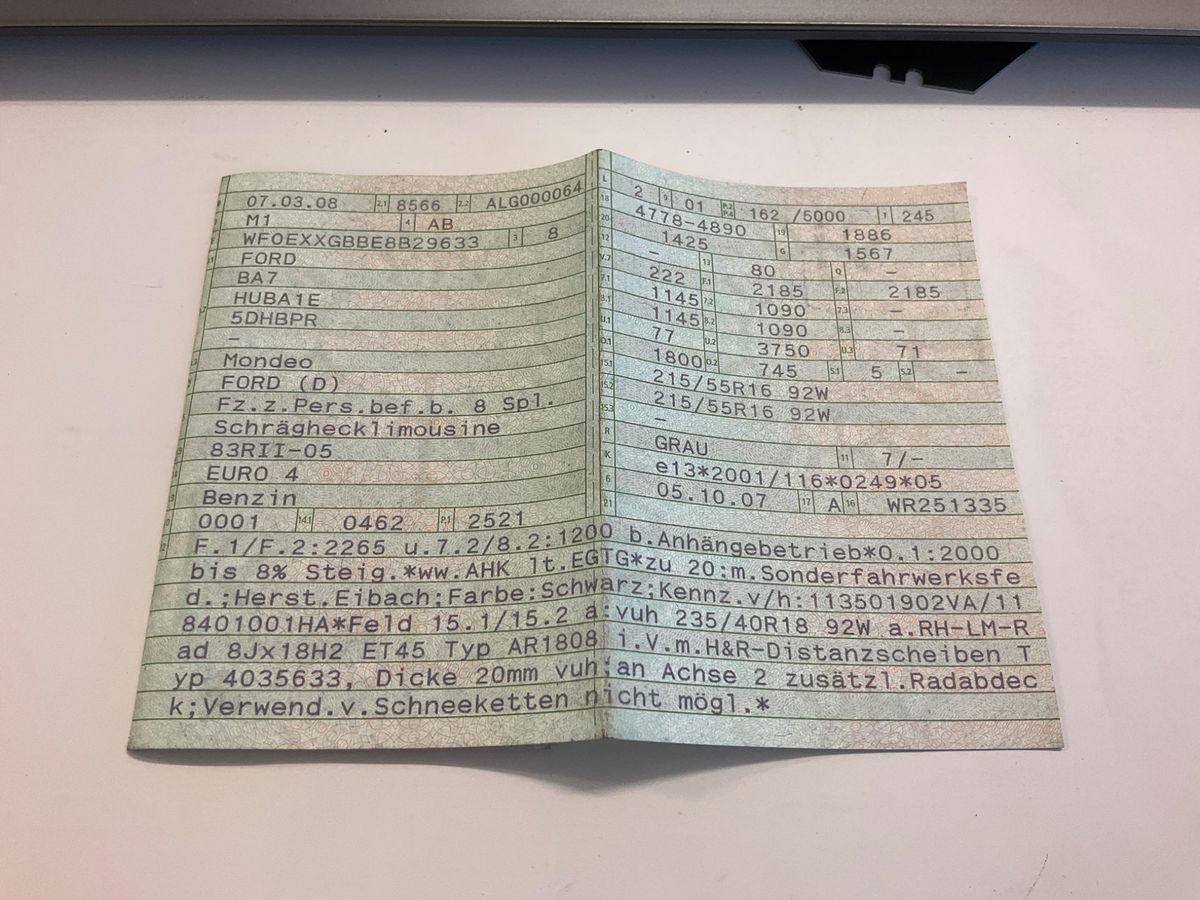 07.03.08 2.1 8566 2.2 ALG000064
M1 4 AB
WF0EXXGBBE8B29633 3 8
FORD
BA7
HUBA1E
5DHBPR
–
Mondeo
FORD (D)
Fz.z.Pers.bef.b. 8 Spl.
Schräghecklimousine
83RII-05
EURO 4
Benzin
0001 14.1 0462 P.1 2521
L 2 9 01 P.2 P.4 162 /5000 T 245
18 4778-4890 19 1886
20 1425 G 1567
12 – 13 80 Q –
V.7 222 F.1 2185 F.2 2185
7.1 1145 7.2 1090 7.3 –
8.1 1145 8.2 1090 8.3 –
U.1 77 U.2 3750 U.3 71
O.1 1800 O.2 745 S.1 5 S.2 –
15.1 215/55R16 92W
15.2 215/55R16 92W
15.3 –
R GRAU 11 7/-
K e13*2001/116*0249*05
6 05.10.07 17 A 16 WR251335
21
F.1/F.2:2265 u.7.2/8.2:1200 b.Anhängebetrieb*O.1:2000
bis 8% Steig.*ww.AHK lt.EGTG*zu 20:m.Sonderfahrwerksfe
d.;Herst.Eibach;Farbe:Schwarz;Kennz.v/h:113501902VA/11
8401001HA*Feld 15.1/15.2 a:vuh 235/40R18 92W a.RH-LM-R
ad 8Jx18H2 ET45 Typ AR1808 i.V.m.H&R-Distanzscheiben T
yp 4035633, Dicke 20mm vuh;an Achse 2 zusätzl.Radabdec
k;Verwend.v.Schneeketten nicht mögl.*